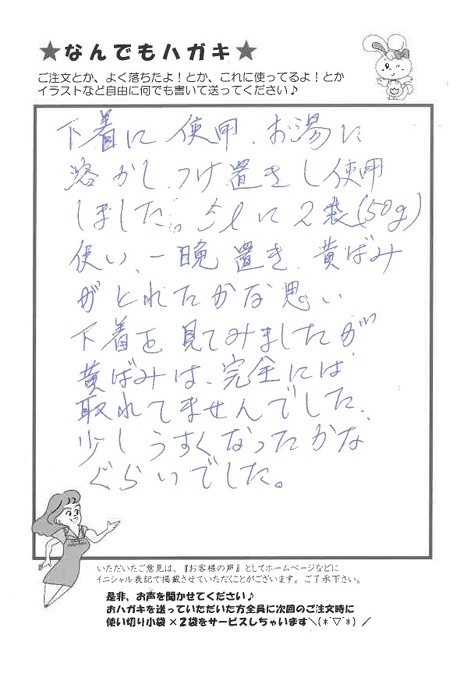 ★なんでもハガキ★
ご注文とか、よく落ちたよ！とか、これに使ってるよ！とか
イラストなど自由に何でも書いて送ってください♪
下着に使用、お湯に
溶かし つけ置きし使用
しました。5ℓに2袋(50g)
使い、一晩置き、黄ばみ
がとれたかな思い
下着を見てみましたが
黄ばみは、完全には
取れてませんでした、
少しうすくなったかな
ぐらいでした。
いただいたご意見は、『お客様の声』としてホームページなどに
イニシャル表記で掲載させていただくことがございます。ご了承下さい。
是非、お声を聞かせてください♪
おハガキを送っていただいた方全員に次回のご注文時に
使い切り小袋×2袋をサービスしちゃいます＼(*´▽`*)／